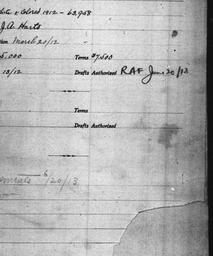 & Colored 1912 - 62,958
J.A. Harts
March 20/12
5,000 Terms $7,500
13/12 Drafts Authorized RAF Jan 20/13
Terms
Drafts Authorized
6/20/13